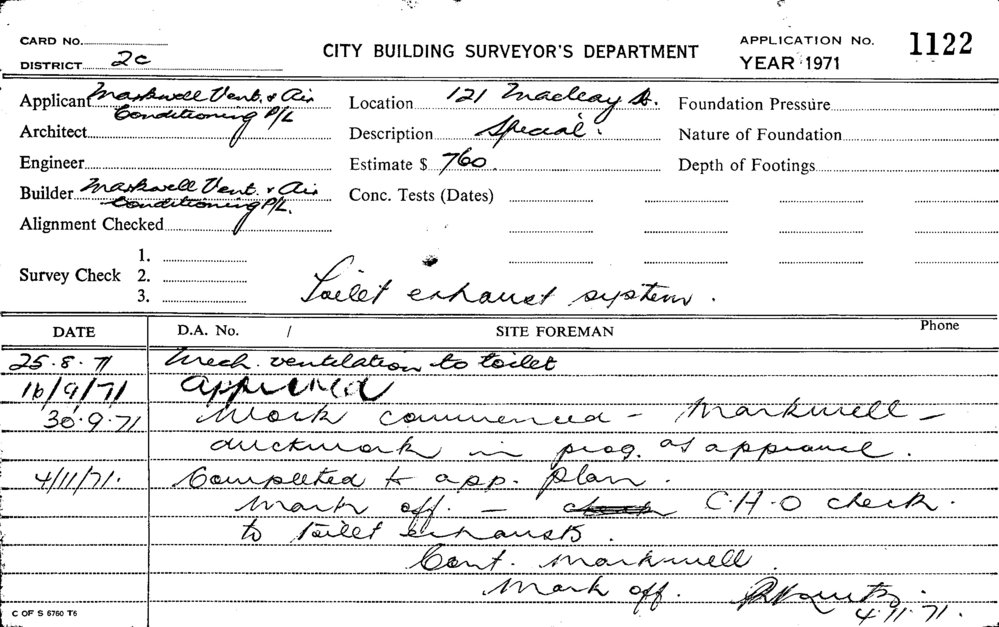 CARD No.
CITY BUILDING SURVEYOR'S DEPARTMENT
APPLICATION No. 1122
DISTRICT 2c
YEAR 1971
Applicant Markwell Vent. & Air
Conditioning P/L
Location 121 Macleay St.
Foundation Pressure
Architect
Description Special.
Nature of Foundation
Engineer
Estimate $ 760.
Depth of Footings
Builder Markwell Vent. & Air
Conditioning P/L.
Conc. Tests (Dates)
Alignment Checked
Survey Check
1.
2.
3.
Toilet exhaust system.
DATE
D.A. No. /
SITE FOREMAN
Phone
25.8.71 Mech. ventilation to toilet
16/9/71 Approved
30.9.71 Work commenced - Markwell -
ductwork in prog. as approved.
4/11/71. Completed to app. plan.
Mark off. - C.H.O check.
to toilet exhausts.
Cont. Markwell.
Mark off.
4.11.71.
C OF S 6760 T6